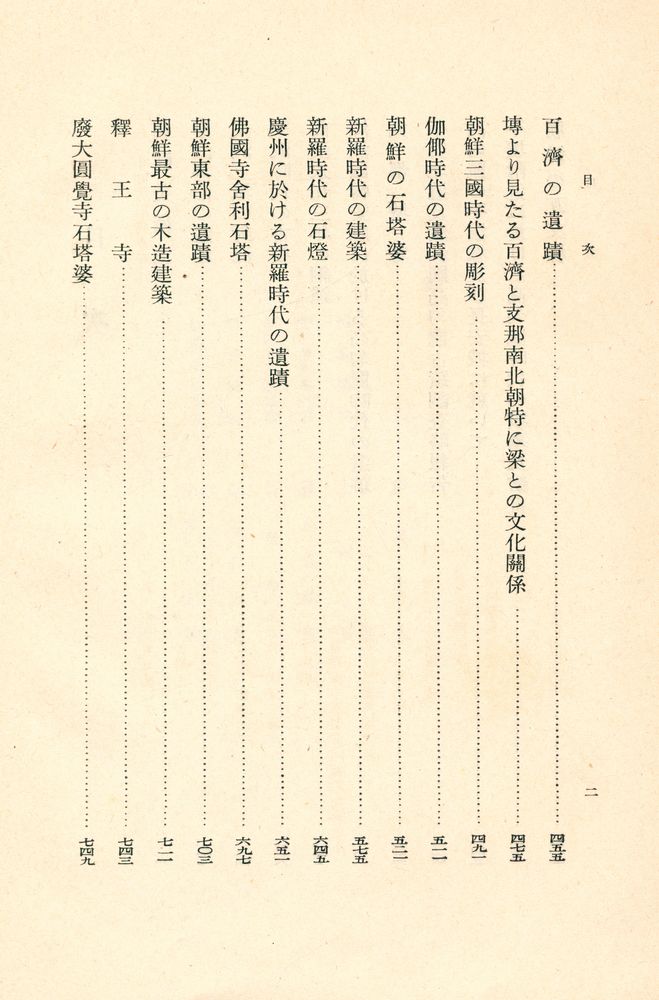 目次
二
百濟の遺蹟……四五五
塼より見たる百濟と支那南北朝特に梁との文化關係……四七五
朝鮮三國時代の彫刻……四九一
伽倻時代の遺蹟……五一一
朝鮮の石塔婆……五二一
新羅時代の建築……五七五
新羅時代の石燈……六四五
慶州に於ける新羅時代の遺蹟……六五一
佛國寺舍利石塔……六九七
朝鮮東部の遺蹟……七〇三
朝鮮最古の木造建築……七二一
釋王寺……七四三
廢大圓覺寺石塔婆……七四九